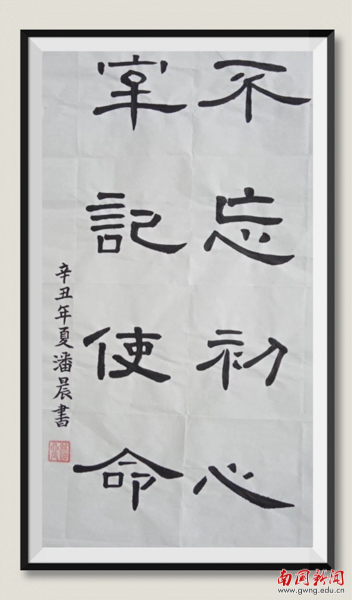 不忘初心
牢記使命
辛丑年夏潘晨書
南国新闻
www.gwng.edu.cn